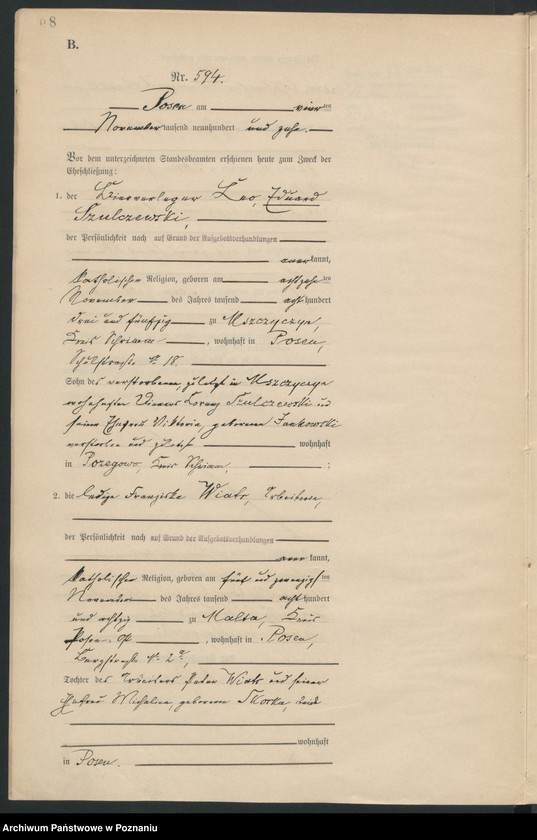 8
B.
Nr. 594.
Posen am vierten
November tausend neunhundert und zehn.
Vor dem unterzeichneten Standesbeamten erschienen heute zum Zweck der
Eheschließung:
1. der Bierverleger Leo Eduard
Szulczewski,
der Persönlichkeit nach auf Grund der Aufgebotsverhandlungen
anerkannt,
katholischer Religion, geboren am achtzehnten
November des Jahres tausend achthundert
drei und fünfzig zu Mszczyczyn,
Kreis Schrimm, wohnhaft in Posen,
Schulstraße № 18.
Sohn des verstorbenen, zuletzt in Mszczyczyn
wohnhaften Lorenz Szulczewski und
seiner Ehefrau Viktoria, geborenen Jankowski
verstorben und zuletzt wohnhaft
in Pozegowo, Kreis Schrimm. ;
2. die ledige Franziska Wiats, Arbeiterin,
der Persönlichkeit nach auf Grund der Aufgebotsverhandlungen
anerkannt,
katholischer Religion, geboren am fünf und zwanzigsten
November des Jahres tausend achthundert
und achtzig zu Malta, Kreis
Posen-Ost, wohnhaft in Posen,
Bergstraße № 2
Tochter des Arbeiters Peter Wiats und seiner
Ehefrau Michalina, geborenen Skorka, beide
wohnhaft
in Posen.
Archiwum Państwowe w Poznaniu